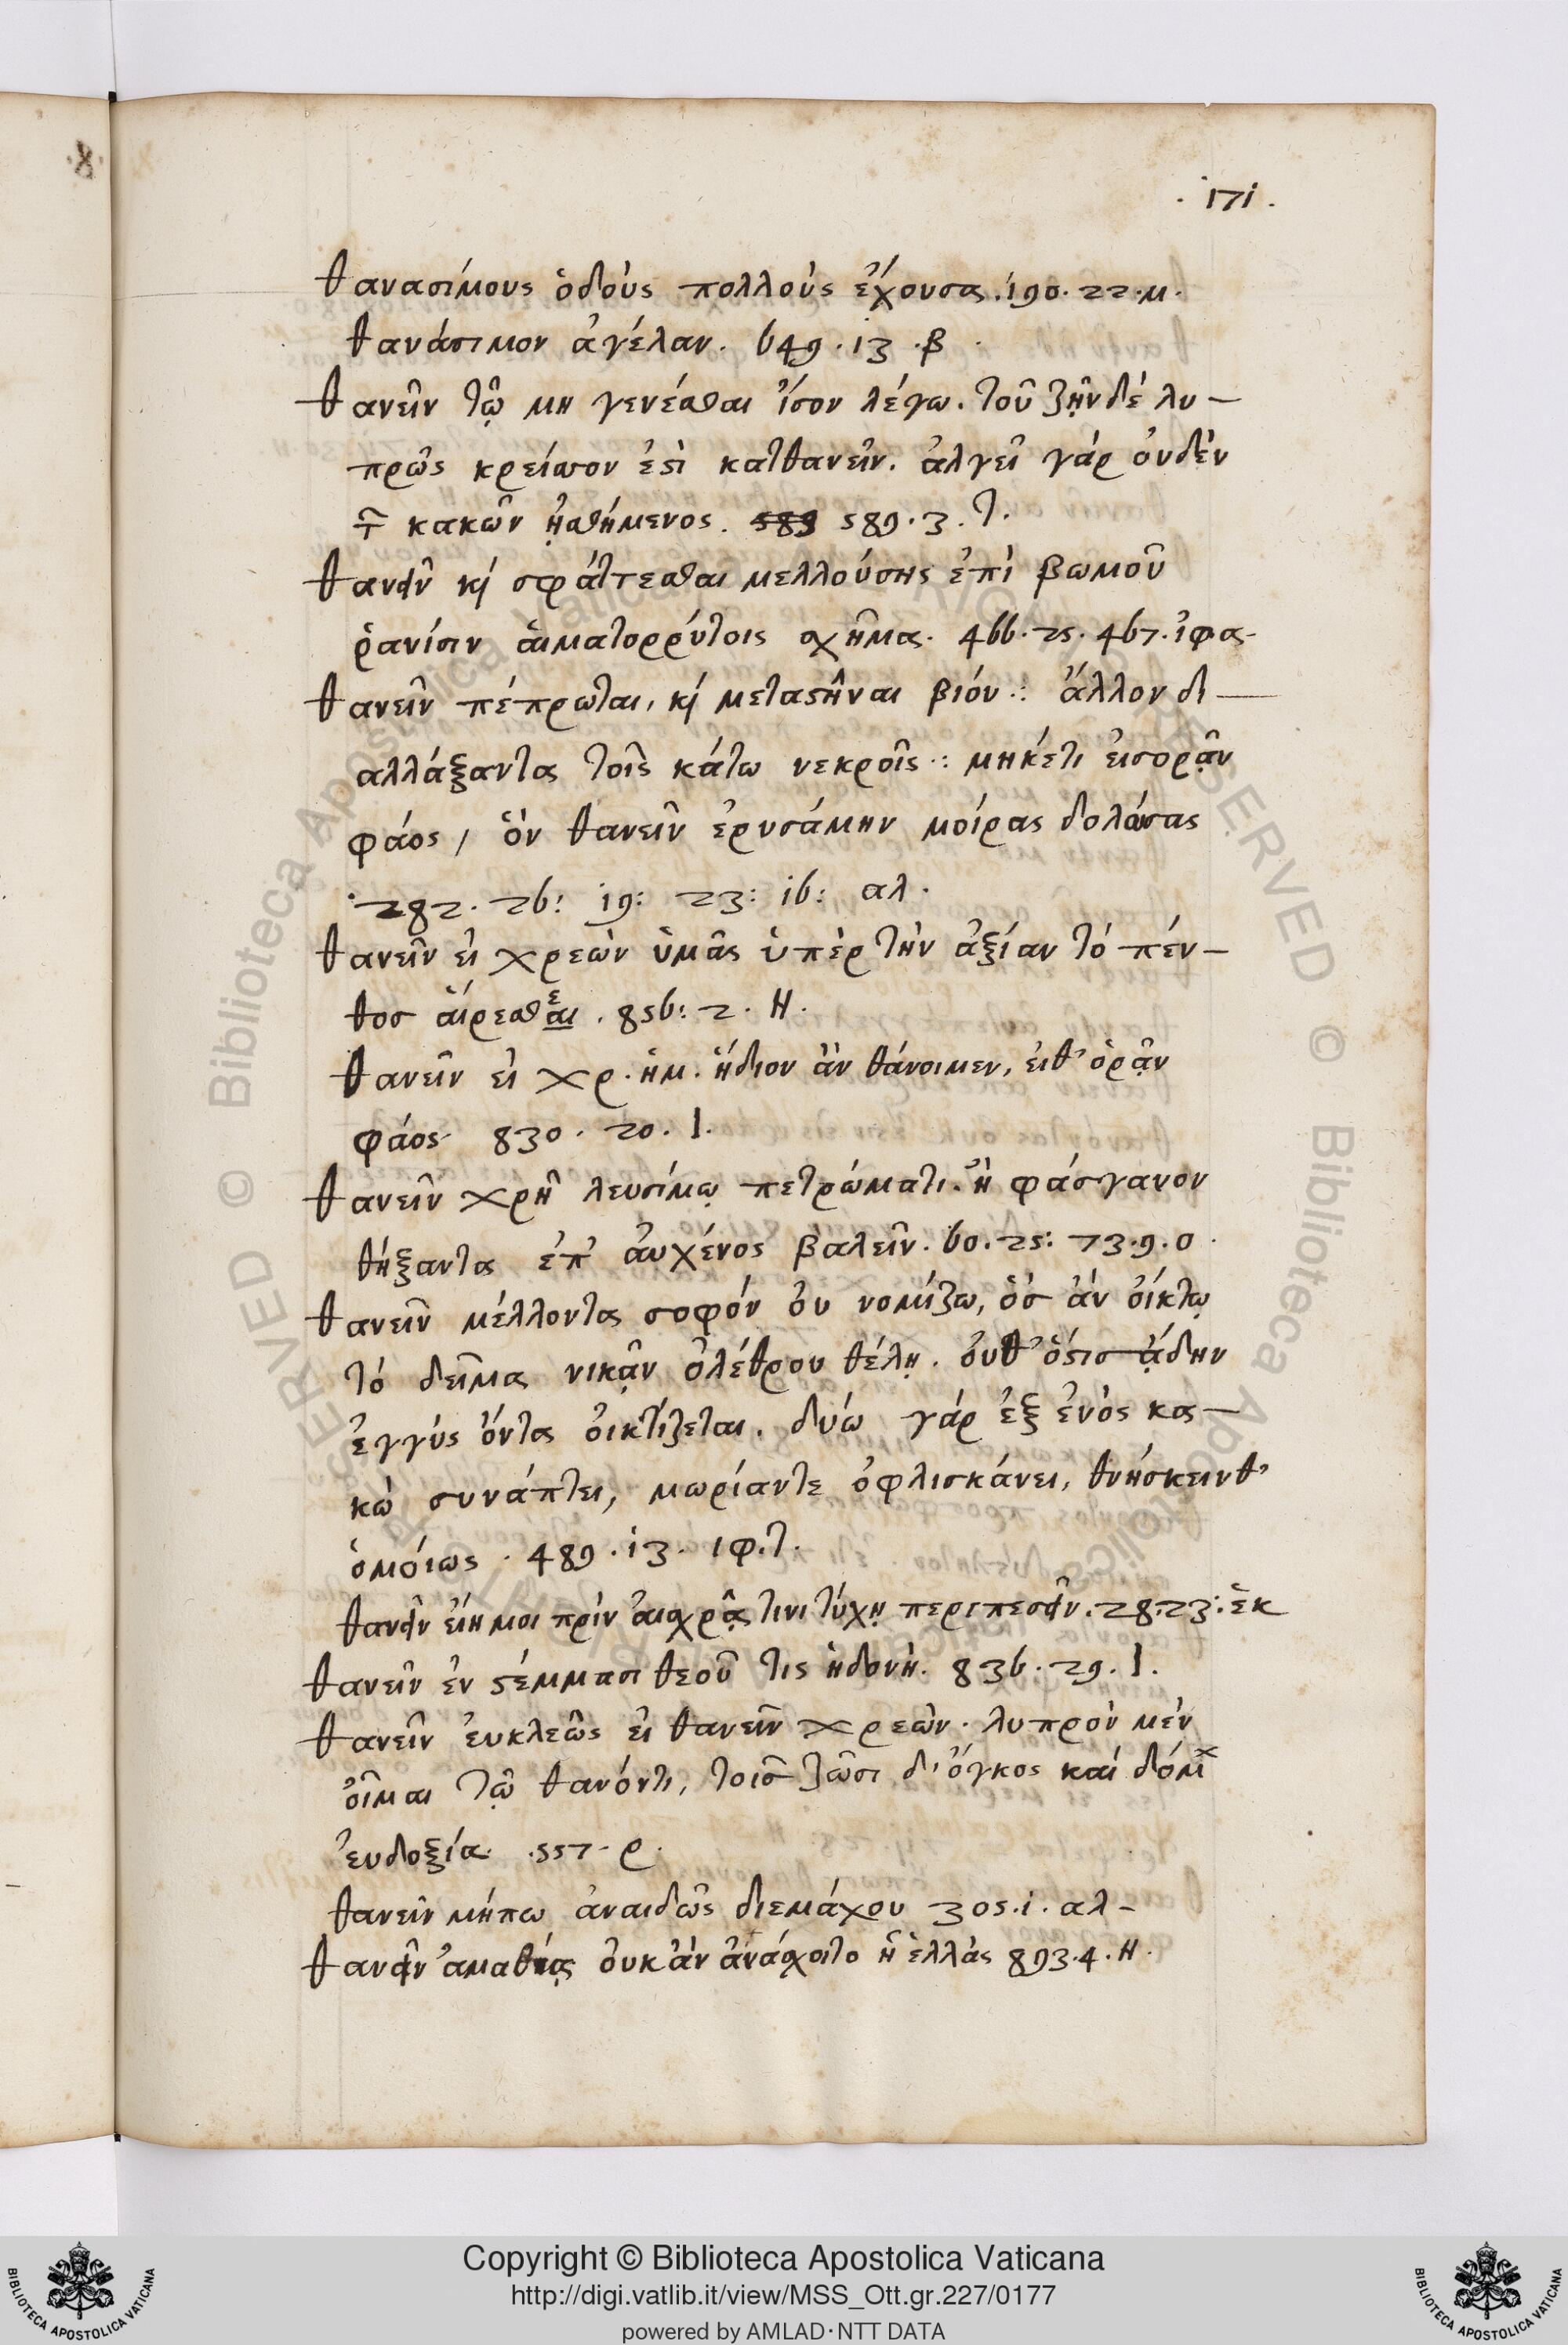 .171.
θανασίμους ὁδοὺς πολλοὺς ἔχουσα. 190. 22. μ.
θανάσιμον ἀγέλαν. 649. 13. β.
θανεῖν τῷ μη γενέσθαι ἴσον λέγω. τοῦ ζῇν δέ λυ-
πρῶς κρείσσον ἐστὶ κατθανεῖν. ἀλγεῖ γάρ οὐδὲν
τ̃ κακῶν ᾐσθήμενος. 589 589. 3. τ.
θανεῖν κỳ σφάττεσθαι μελλούσης ἐπὶ βωμοῦ
ῥανίσιν αἱματορρύτοις σχῆμα. 466. 25. 467. ἰφα.
θανεῖν πέπρωται, κỳ μεταστῆναι βιόν .: ἄλλον δι-
αλλάξαντα τοῖς κάτω νεκροῖς .: μηκέτι εἰσορᾷν
φάος / ὃν θανεῖν ἐρυσάμην μοίρας δολώσας
.282. 26: 19: 23: 16: αλ.
θανεῖν εἰ χρεὼν ὑμᾶς ὑπὲρ τὴν ἀξίαν τό πέν-
θοσ αἴρεσθαι ε. 856: 2. Η.
θανεῖν εἰ χρ. ἡμ. ἥδιον ἂν θάνοιμεν, εἰθ' ὁρᾷν
φάος 830. 20. Ι.
θανεῖν χρῆ λευσίμῳ πετρώματι. ἢ φάσγανον
θήξαντα ἐπ' αὐχένος βαλεῖν. 60. 25: 73. 9. ο.
θανεῖν μέλλοντα σοφόν οὐ νομίζω, ὃσ ἀν οἴκτῳ
τό δεῖμα νικᾷν ὀλέθρου θέλῃ. οὐθ' ὅστισ ᾅδην
ἐγγύς ὄντα οἰκτίζεται. δυώ γάρ ἐξ ἑνὸς κα-
κὼ συνάπτει, μωρίαντε ὀφλισκάνει, θνήσκει νθ'
ὁμοίως. 489. 13. ιφ. τ.
θανεῖν εἴη μοι πρίν αἰσχρᾷ τινι τύχῃ περιπεσεῖν. 28: 23: ἑκ
θανεῖν ἐν στέμμασι θεοῦ τις ἡδονὴ. 836. 29. Ι.
θανεῖν εὐκλεῶς εἰ θανεῖν χρεὼν. λυπρὸν μὲν
οἶμαι τῷ θανόντι, τοισ ζῶσι δ' ὄγκος καί δόμ
εὐδοξία. .557. ρ.
θανεῖν μήπω ἀναιδῶς διεμάχου 305. 1. αλ-
θανεῖν ἀμαθίᾳ οὐκ ἂν ἀνάσχοιτο ἡ ἑλλὰς 893. 4. Η.
Copyright © Biblioteca Apostolica Vaticana
http://digi.vatlib.it/view/MSS_Ott.gr.227/0177
powered by AMLAD·NTT DATA